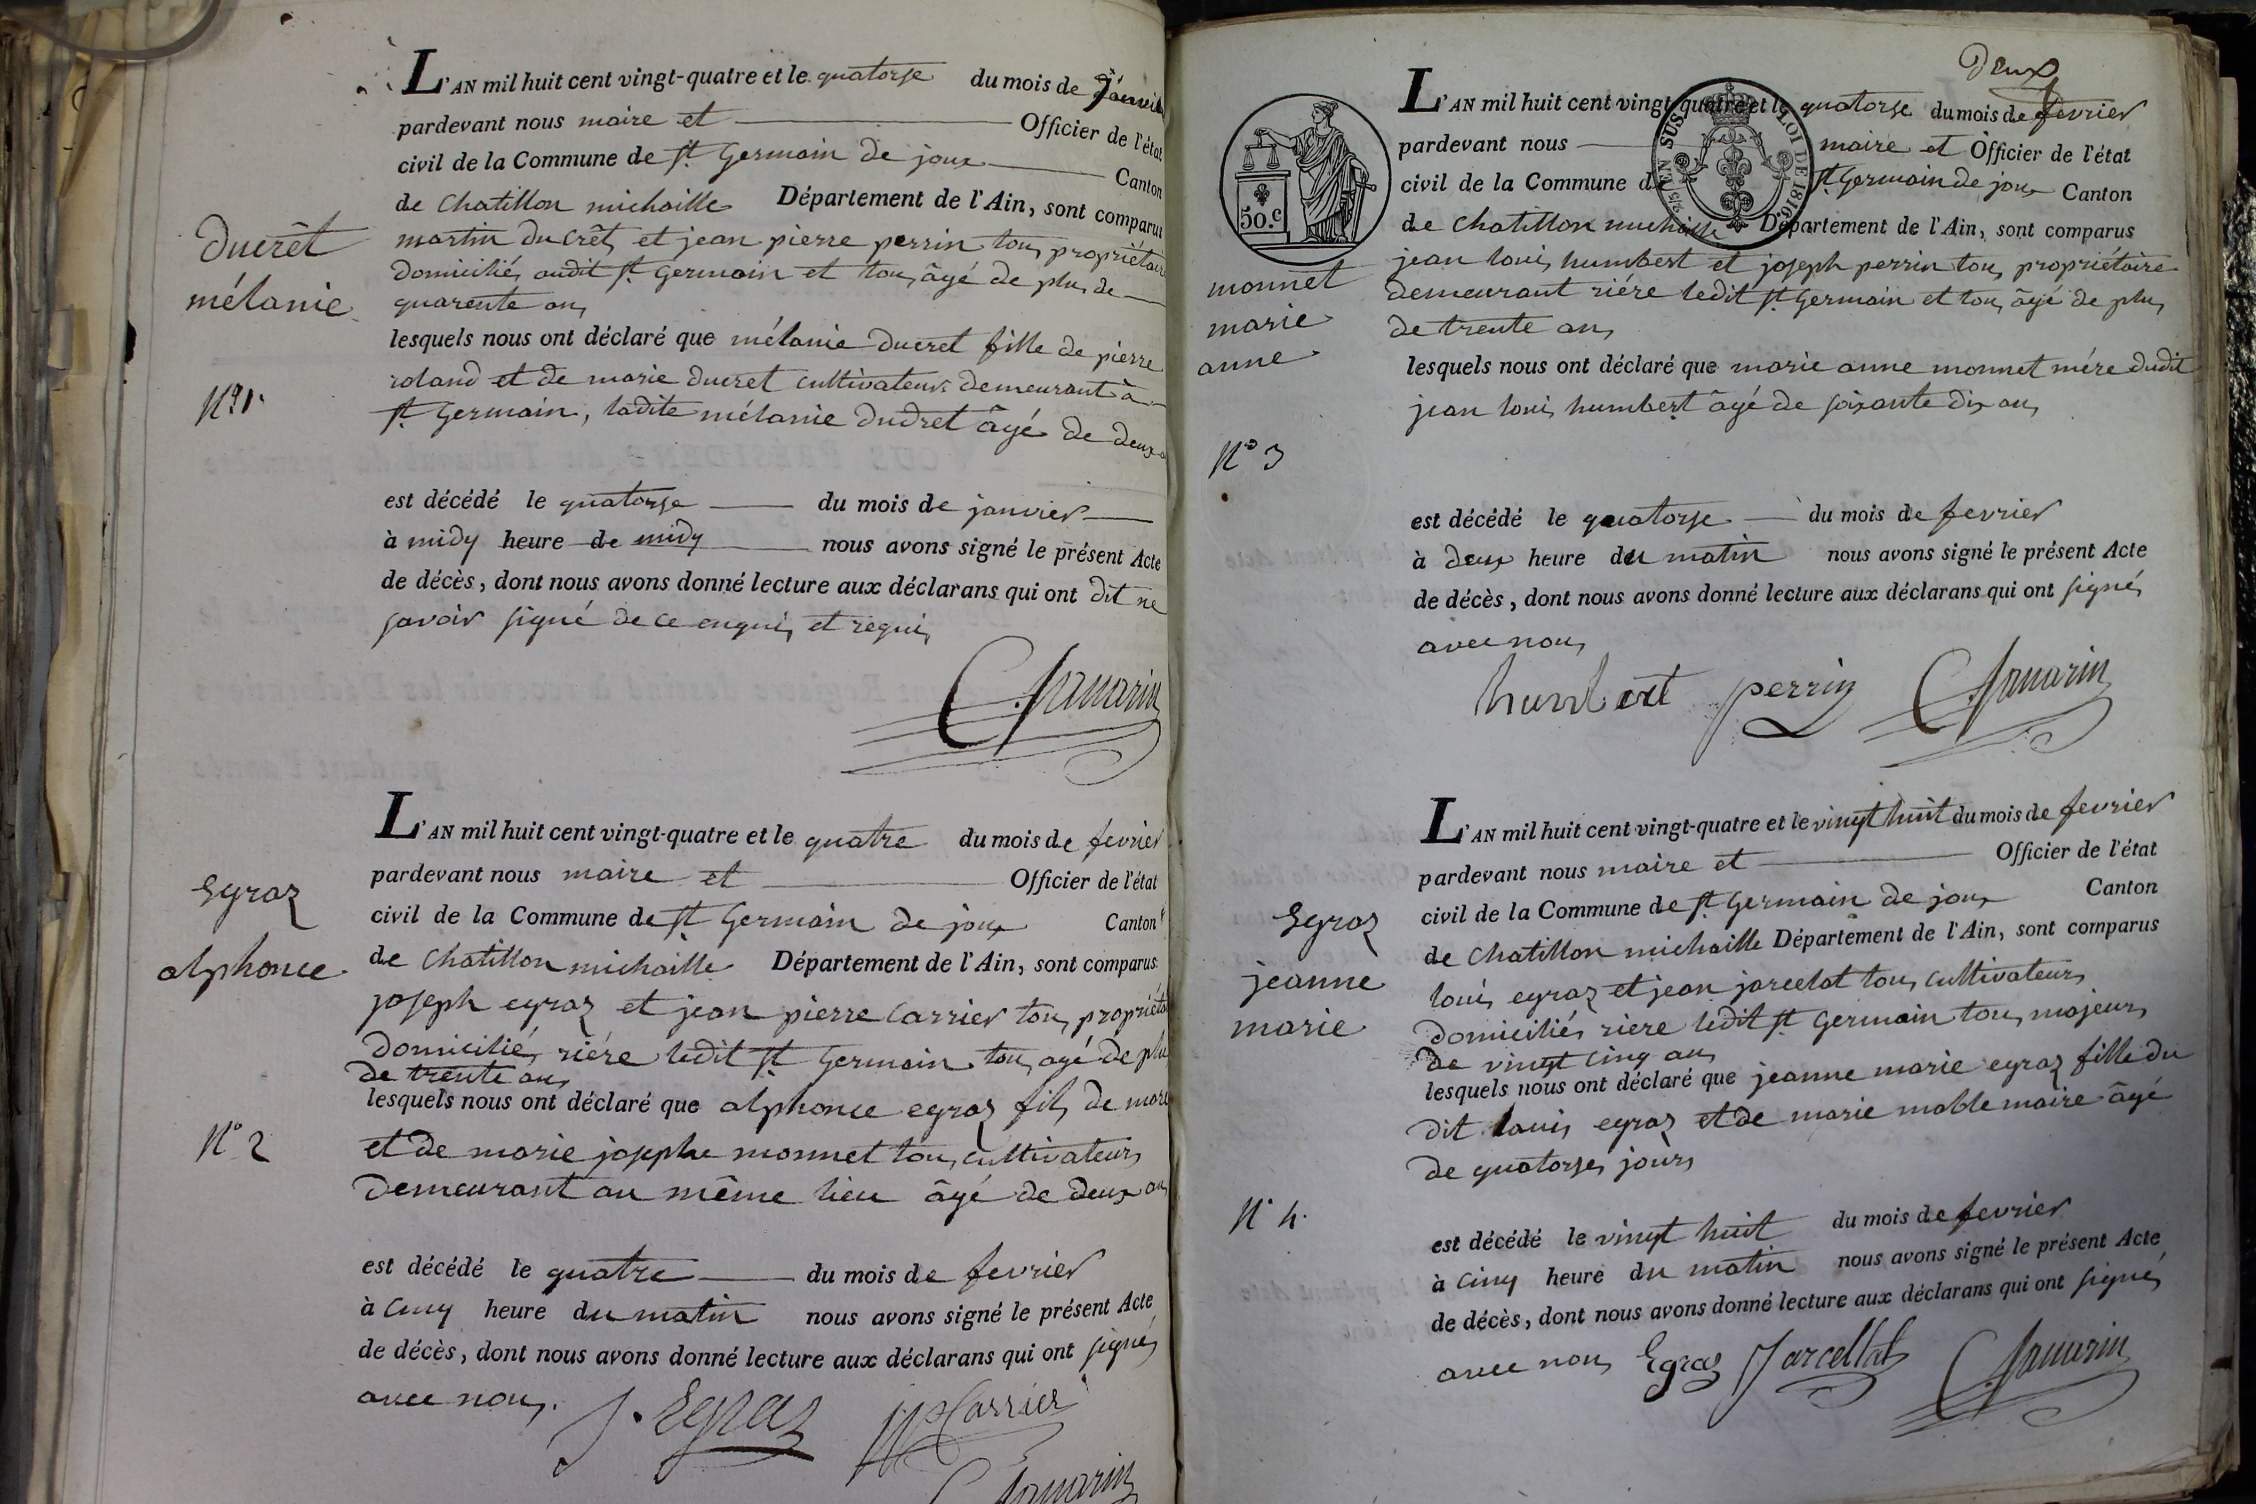 L'AN mil huit cent vingt-quatre et le quatorze du mois de Janvier
pardevant nous maire et Officier de l'état
civil de la Commune de St Germain de joux Canton
de Chatillon michaille Département de l'Ain, sont comparus
martin du Crêt et jean pierre perrin tous propriétaire
domiciliés audit St Germain et tous âgé de plus de
quarente ans
Ducrêt
mélanie
lesquels nous ont déclaré que mélanie ducret fille de pierre
roland et de marie ducret cultivateurs demeurant à
St Germain, ladite mélanie dudret âgé de deux
N° 1.
est décédé le quatorze du mois de janvier
à midy heure de midy nous avons signé le présent Acte
de décès, dont nous avons donné lecture aux déclarans qui ont dit ne
savoir signé de ce enquis et requis
L'AN mil huit cent vingt-quatre et le quatre du mois de fevrier
pardevant nous maire et Officier de l'état
civil de la Commune de St Germain de joux Canton
de Chatillon michaille Département de l'Ain, sont comparus
joseph egraz et jean pierre Carrier tous propriétai
domiciliés riére ledit St Germain tous agé de plus
de trente ans
Egraz
alphonce
lesquels nous ont déclaré que alphonce egraz fils de
et de marie josephe monnet tous cultivateurs
demeurant au même lieu âgé de deux ans
N° 2
est décédé le quatre du mois de fevrier
à cinq heure du matin nous avons signé le présent Acte
de décès, dont nous avons donné lecture aux déclarans qui ont signés
avec nous.
J. Egraz Carrier
deux
L'AN mil huit cent vingt-quatre et le quatorze du mois de fevrier
pardevant nous maire et Officier de l'état
civil de la Commune de St Germain de joux Canton
de Chatillon michaille Département de l'Ain, sont comparus
jean louis humbert et joseph perrin tous propriétaire
demeurant riére ledit St Germain et tous âgé de plus
de trente ans
50.c
LOI DE 1816.
monnet
marie
anne
lesquels nous ont déclaré que marie anne monnet mére dudit
jean louis humbert âgé de soixante dix ans
N° 3
est décédé le quatorze du mois de fevrier
à deux heure du matin nous avons signé le présent Acte
de décès, dont nous avons donné lecture aux déclarans qui ont signés
avec nous
humbert perrin
L'AN mil huit cent vingt-quatre et le vingt huit du mois de fevrier
pardevant nous maire et Officier de l'état
civil de la Commune de St Germain de joux Canton
de Chatillon michaille Département de l'Ain, sont comparus
louis egraz et jean jarcelot tous cultivateurs
domiciliés riere ledit St Germain tous majeurs
de vingt cinq ans
Egraz
jeanne
marie
lesquels nous ont déclaré que jeanne marie egraz fille du
dit louis egraz et de marie mable maire âgé
de quatorzes jours
N° 4.
est décédé le vingt huit du mois de fevrier
à cinq heure du matin nous avons signé le présent Acte
de décès, dont nous avons donné lecture aux déclarans qui ont signés
avec nous Egraz Jarcellat